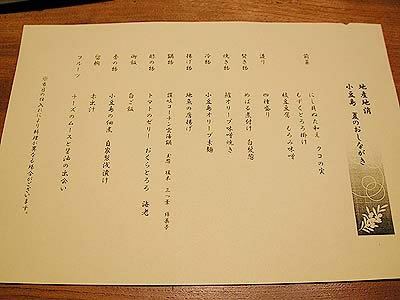 地産地消
小豆島 夏のおしながき
前菜
にし貝ぬた和え クコの実
もずくとろろ掛け
枝豆豆腐 もろみ味噌
造り
四種盛り
炊き物
めばる煮付け 白髪葱
焼き物
鱧オリーブ味噌焼き
冷物
小豆島オリーブ素麺
揚げ物
地魚の唐揚げ
鍋物
讃岐コーチン雲海鍋
酢の物
トマトのゼリー おくらとろろ 海老
御飯
白ご飯
香の物
小豆島の佃煮 自家製浅漬け
留椀
赤出汁
フルーツ
チーズのムースと醤油の出会い
※当日の仕入れにより料理が異なる場合がございます。